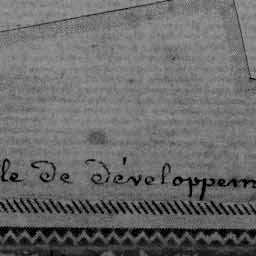 le de développem